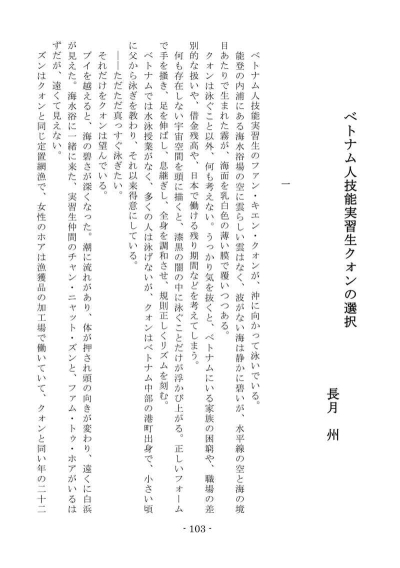 ベトナム人技能実習生クオンの選択
長月　州
一
ベトナム人技能実習生のファン・キエン・クオンが、沖に向かって泳いでいる。
能登の内浦にある海水浴場の空に雲らしい雲はなく、波がない海は静かに碧いが、水平線の空と海の境
目あたりで生まれた霧が、海面を乳白色の薄い膜で覆いつつある。
クオンは泳ぐこと以外、何も考えない。うっかり気を抜くと、ベトナムにいる家族の困窮や、職場の差
別的な扱いや、借金残高や、日本で働ける残り期間などを考えてしまう。
何も存在しない宇宙空間を頭に描くと、漆黒の闇の中に泳ぐことだけが浮かび上がる。正しいフォーム
で手を掻き、足を伸ばし、息継ぎし、全身を調和させ、規則正しくリズムを刻む。
ベトナムでは水泳授業がなく、多くの人は泳げないが、クオンはベトナム中部の港町出身で、小さい頃
に父から泳ぎを教わり、それ以来得意にしている。
――ただただ真っすぐ泳ぎたい。
それだけをクオンは望んでいる。
ブイを越えると、海の碧さが深くなった。潮に流れがあり、体が押され頭の向きが変わり、遠くに白浜
が見えた。海水浴に一緒に来た、実習生仲間のチャン・ニャット・ズンと、ファム・トゥ・ホアがいるは
ずだが、遠くて見えない。
ズンはクオンと同じ定置網漁で、女性のホアは漁獲品の加工場で働いていて、クオンと同い年の二十二
- 103 -